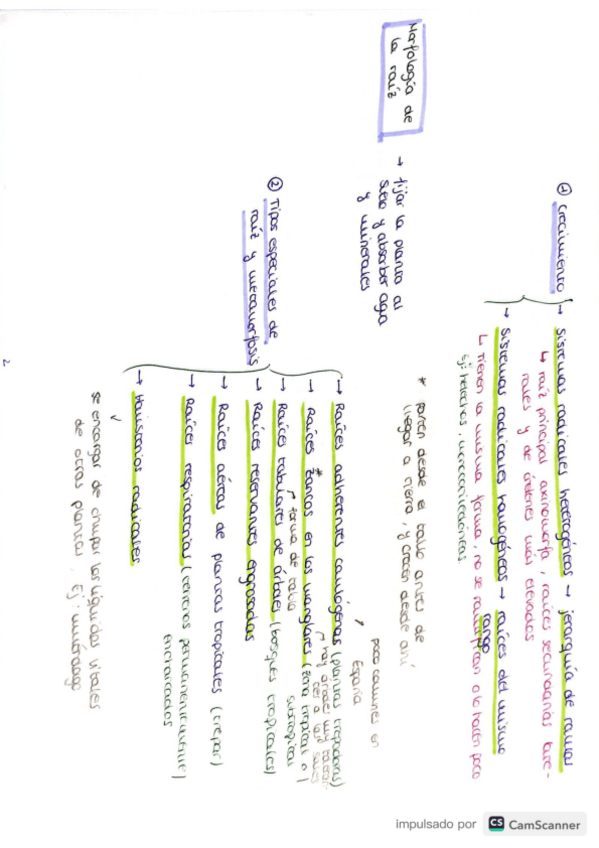 Morfología de
la raíz
→ fijar la planta al
suelo y absorber agua
y minerales
① Crecimiento
→ Sistemas radicales heterogéneos → jerarquía de ramas
↳ raíz principal axonomorfa, raíces secundarias late-
rales y de órdenes más elevados
→ Sistemas radicales homogéneos → raíces del mismo
rango
↳ Tienen la misma forma, no se ramifican o lo hacen poco
Ej: helechos, monocotiledóneas
② Tipos especiales de
raíz y metamorfosis
→ Raíces adherentes caulógenas (plantas trepadoras)
poco comunes en
España
→ Raíces zancos en los manglares (zona tropical o
subtropical)
* parten desde el tallo antes de
llegar a tierra, y crecen desde ahí
→ Raíces tabulares de árboles (bosques tropicales)
forma de tabla
→ Raíces reservantes engrosadas
→ Raíces aéreas de plantas tropicales (trepar)
→ Raíces respiratorias (terrenos permanentemente
encharcados)
→ Haustorios radicales
se encargan de chupar los líquidos vitales
de otras plantas, Ej: muérdago
2
impulsado por CS CamScanner